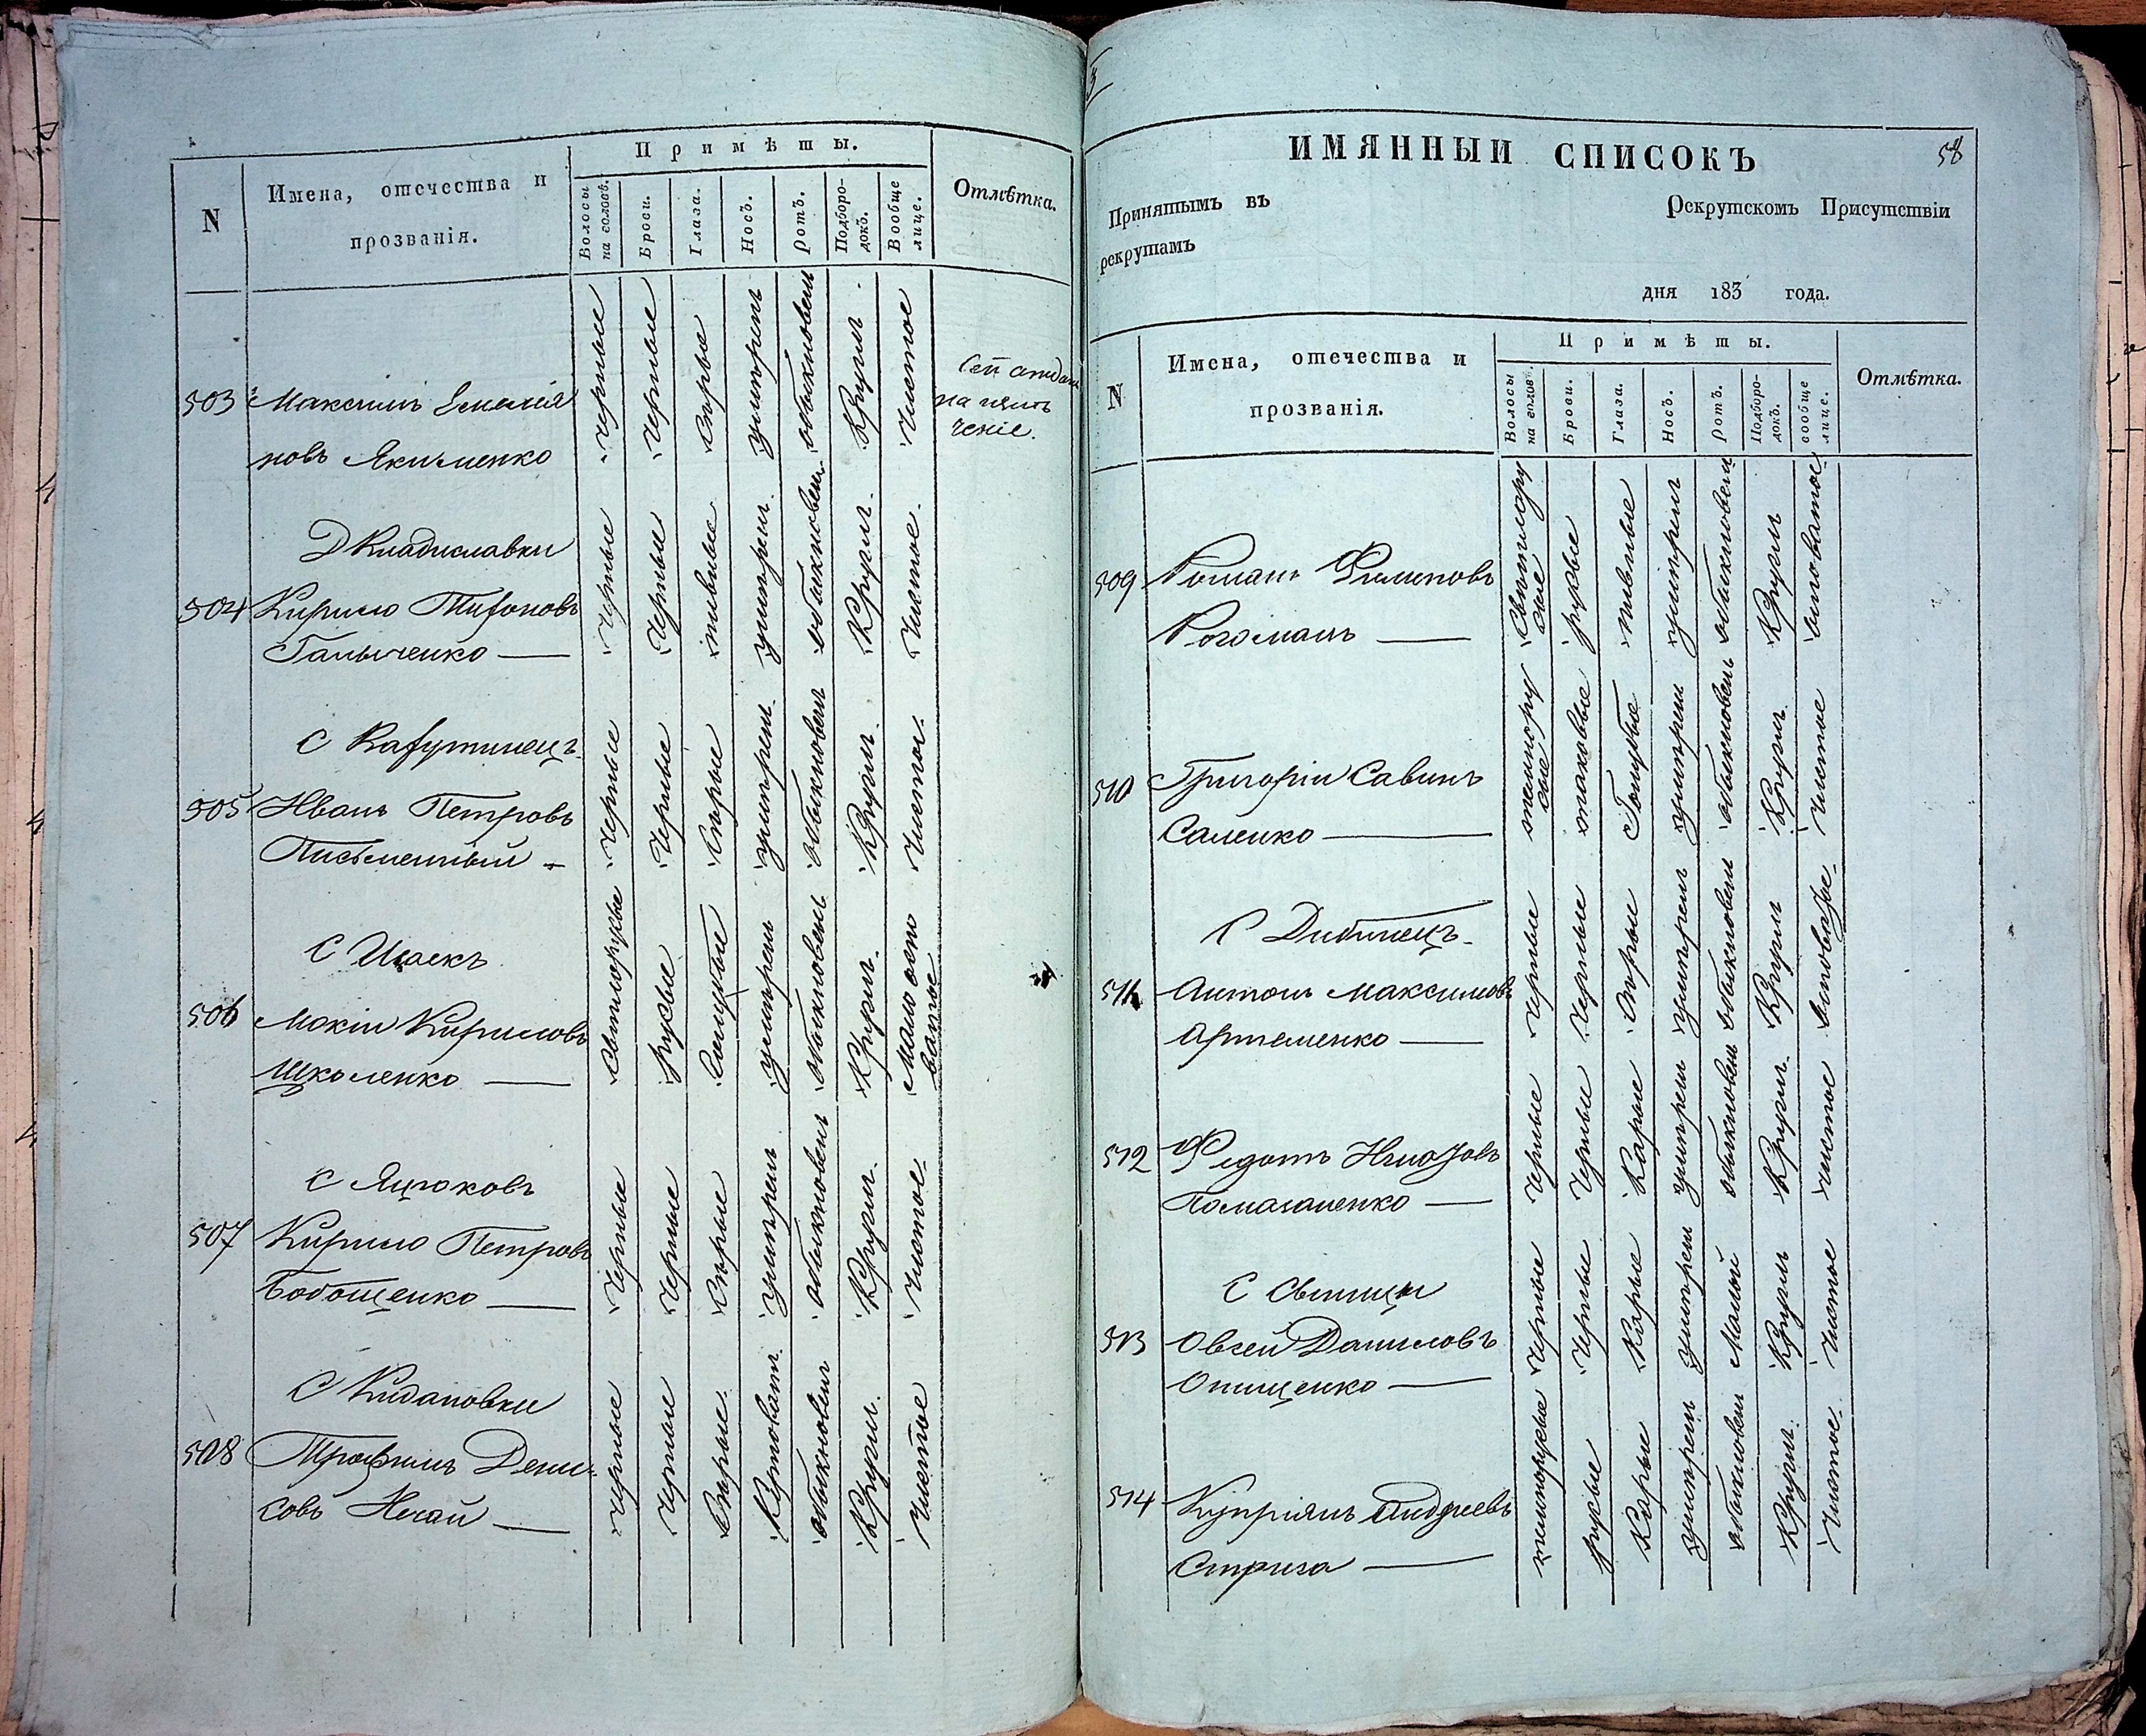 N
Имена, отечества и
прозванія.
Примѣты.
Волосы на головѣ.
Брови.
Глаза.
Носъ.
Ротъ.
Подбородокъ.
Вообще лице.
Отмѣтка.
503 Максимъ Емелія
новъ Якименко
черные черные сѣрые умѣрен обыкновен кругл. чистое
Сей отдан
на
ченіе.
Д Владиславки
504 Кирило Тихоновъ
Галыченко —
черные черные умѣрен. обыкновен. кругл. чистое.
С
505 Иванъ Петровъ
Письменный —
черные черные сѣрые умѣрен. обыкновен кругл. чистое.
С Исаекъ
506 Мокій Кириловъ
Школенко —
светлорусые русые умѣрен обыкновен. кругл. мало оспо
ватое
С Яцюковъ
507 Кирило Петровъ
Бобошенко —
черные черные сѣрые умѣрен обыкновен кругл. чистое.
С Кидановки
508 Трофимъ Дени-
совъ Нечай —
черные черные сѣрые обыкновен кругл. чистое
58
ИМЯННЫЙ СПИСОКЪ
Принятымъ въ Рекрутскомъ Присутствіи
рекрутамъ
дня 183 года.
N
Имена, отечества и
прозванія.
Примѣты.
Волосы на голов.
Брови.
Глаза.
Носъ.
Ротъ.
Подбородокъ.
сообще лице.
Отмѣтка.
509 Романъ Филиповъ
Рогоманъ —
светлору
сые русые умѣрен обыкновен кругл
510 Григорій Савинъ
Саленко —
темнору
сые таковые Голубые умѣрен обыкновен кругл. чистое
С Дибинецъ.
511 Антонъ Максимовъ
Артеменко —
черные черные сѣрые умѣрен обыкновен кругл
512 Федотъ
Помазаненко —
черные черные карые умѣрен обыкновен кругл. чистое
С
513 Овсей Даниловъ
Онищенко —
черные черные карые умѣрен малый кругл чистое
514 Купріянъ Андреевъ
Стрига —
темнорусые русые карые умѣрен обыкновен кругл. чистое.